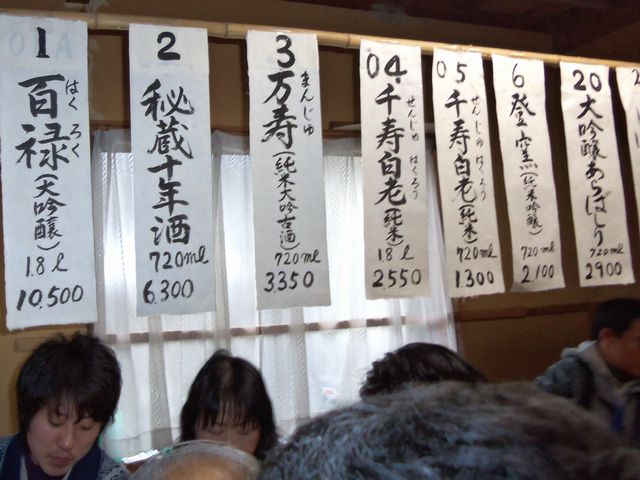 1
百禄
はくろく
(大吟醸)
1.8ℓ
10,500
2
秘蔵十年酒
720ml
6,300
3
万寿
まんじゅ
(純米大吟古酒)
720ml
3,350
04
千寿白老
せんじゅはくろう
(純米)
1.8ℓ
2,550
05
千寿白老
せんじゅはくろう
(純米)
720ml
1,300
6
登窯
(純米吟醸)
720ml
2,100
20
大吟醸あらばしり
720ml
2900